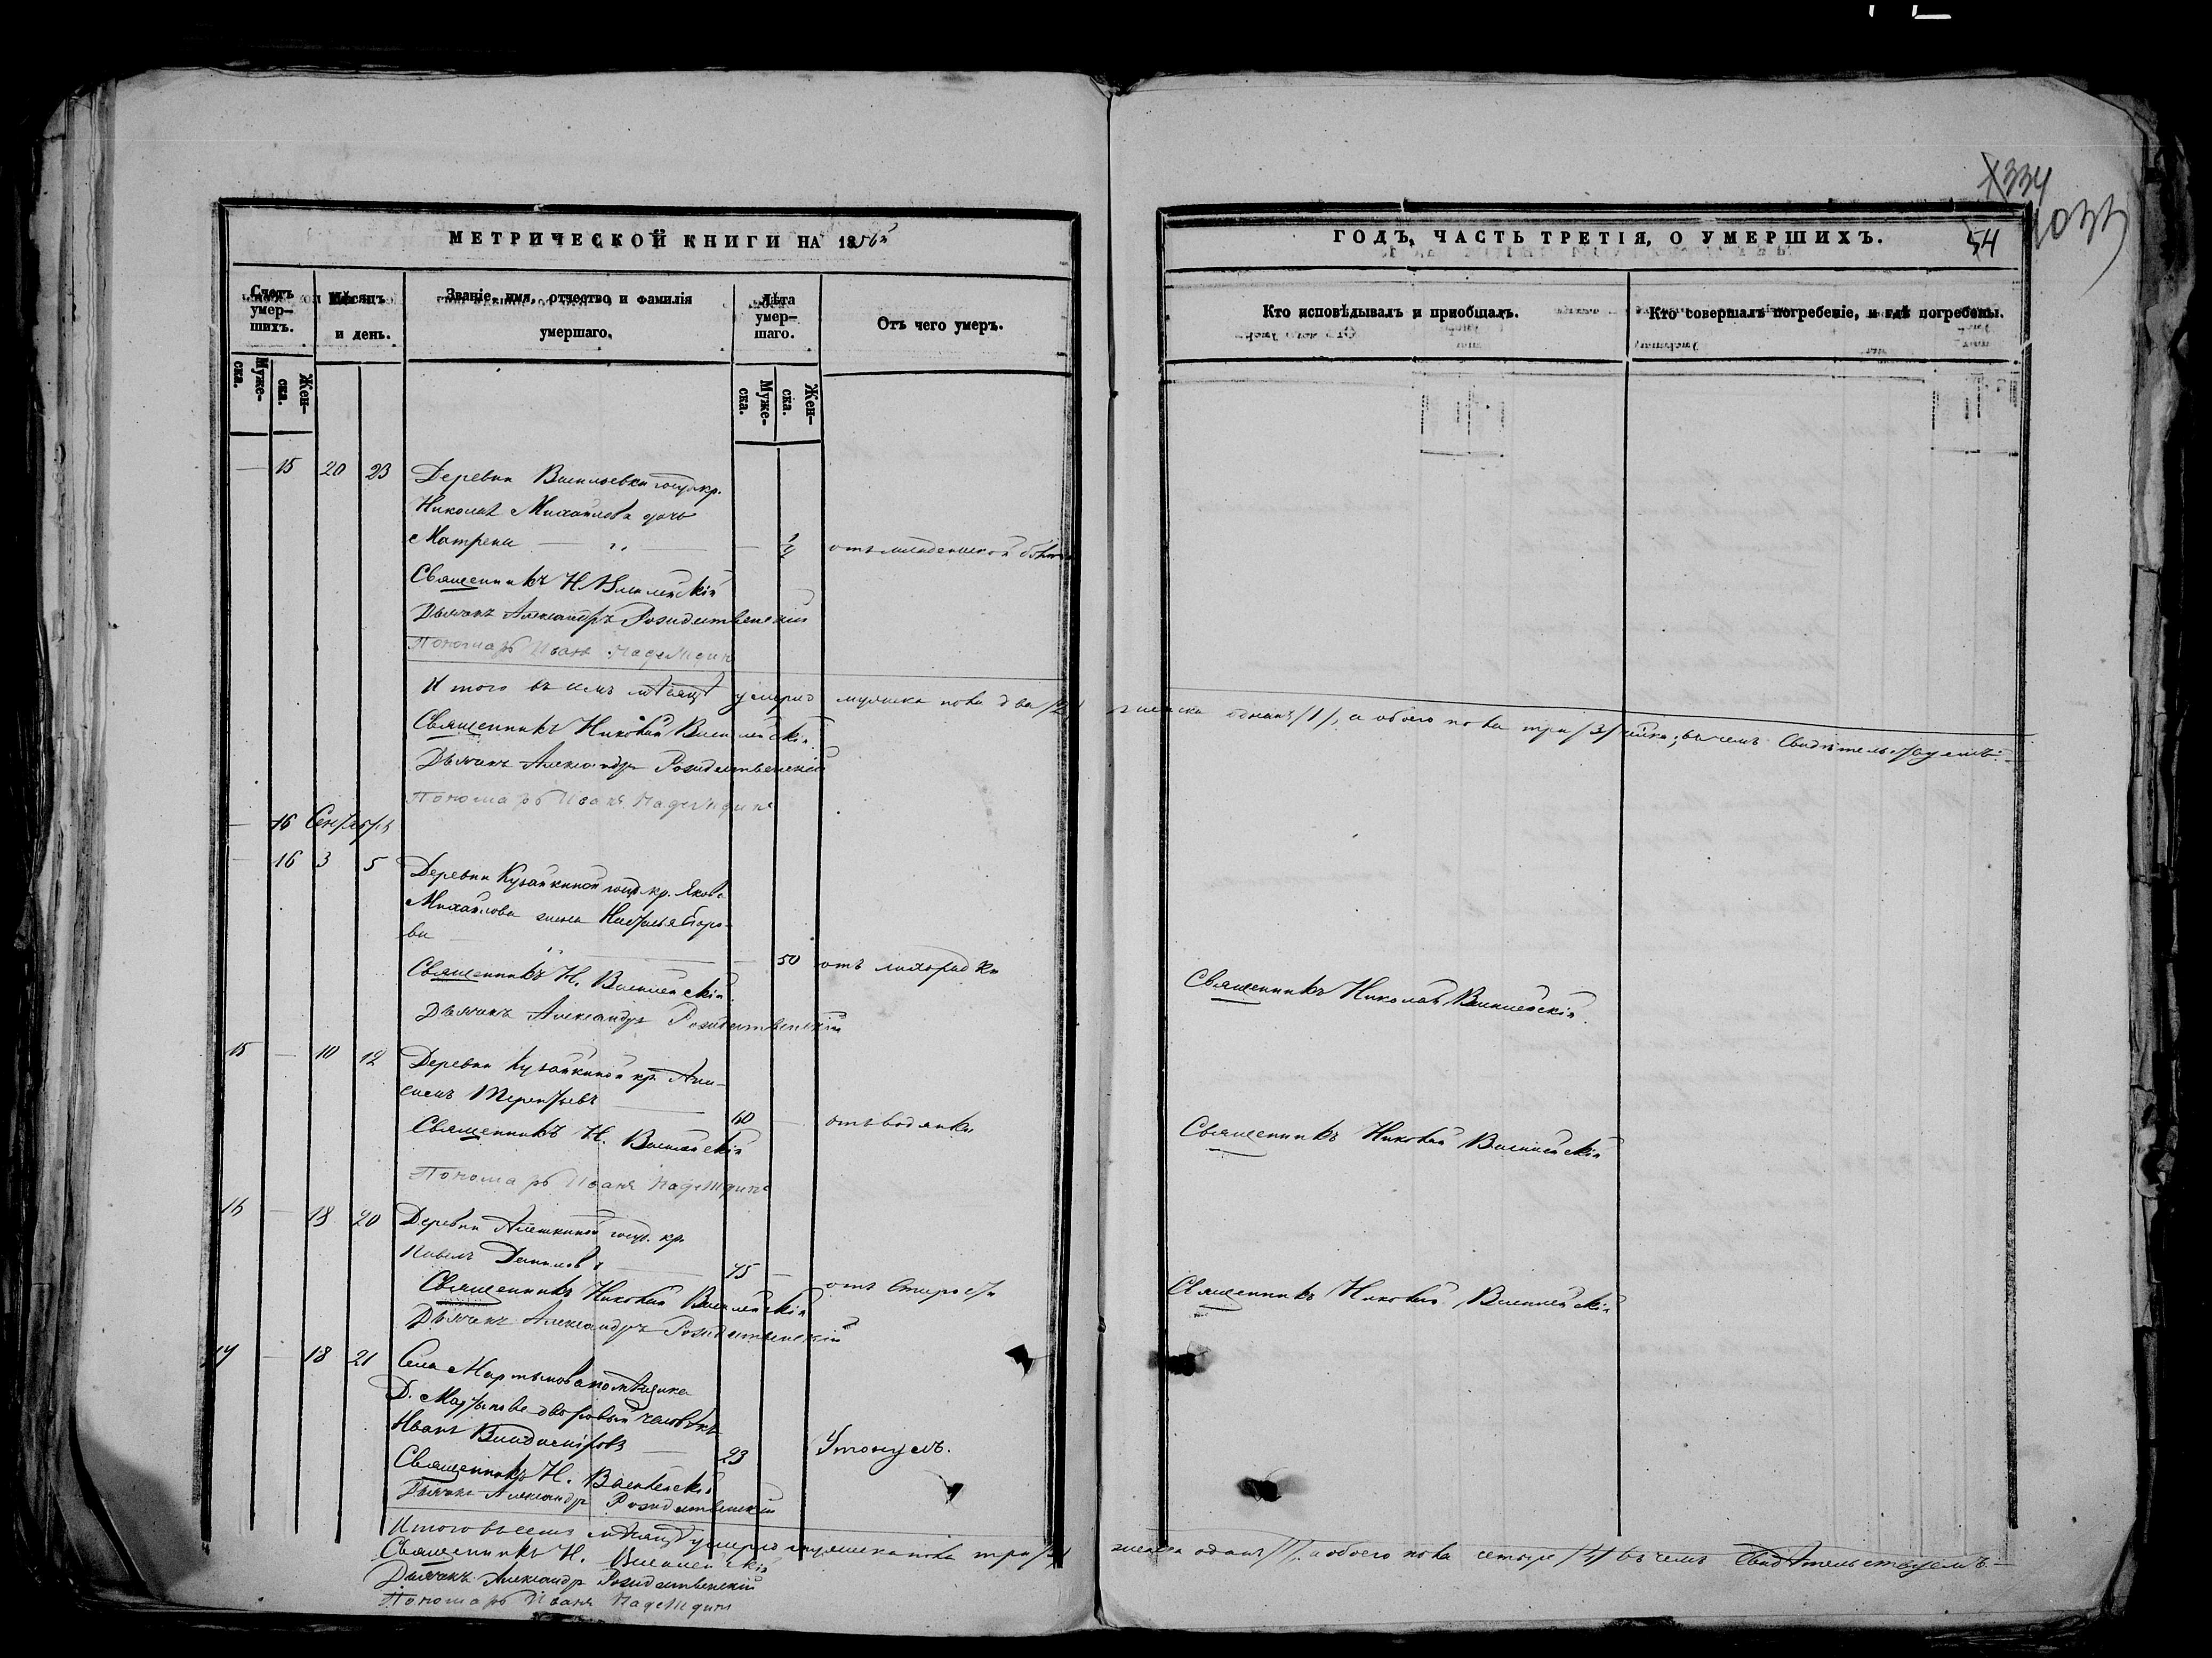 334
1033
МЕТРИЧЕСКОЙ КНИГИ НА 1856й
ГОДЪ, ЧАСТЬ ТРЕТІЯ, О УМЕРШИХЪ.
54
Счетъ умер-
шихъ.
Мѣсяцъ
и день.
Званіе, имя, отчество и фамилія
умершаго.
Лѣта
умер-
шаго.
Отъ чего умеръ.
Кто исповѣдывалъ и пріобщалъ.
Кто совершалъ погребеніе, и гдѣ погребены.
Муже-
ска.
Жен-
ска.
Муже-
ска.
Жен-
ска.
— 15 20 23 Деревни Васильевки госуд. кр.
Николая Михайлова дочь
Матрена — „ — отъ младенческой
Священникъ Н.
Дьячекъ Александръ Рождественскій
Пономарь Иванъ Надеждинъ
Итого въ семъ мѣсяцѣ умерло мужеска пола два /2/ женска одна /1/, а обоего пола три /3/ въ чемъ свидѣтельствуемъ:
Священникъ Николай
Дьячекъ Александръ Рождественскій
Пономарь Иванъ Надеждинъ
— 16 Сентябрь
— 16 3 5 Деревни Кузайкиной госуд. кр. Якова
Михайлова жена Наталья Егоро-
ва — 50 отъ лихорадки
Священникъ Н.
Священникъ Николай
Дьячекъ Александръ Рождественскій
15 — 10 12 Деревни Кузайкиной кр.
Терентьевъ — 60 — отъ водянки
Священникъ Н.
Священникъ Николай
Пономарь Иванъ Надеждинъ
16 — 18 20 Деревни Алешкиной госуд. кр.
Павелъ Даниловъ — 75 — отъ старости
Священникъ Николай
Священникъ Николай
Дьячекъ Александръ Рождественскій
17 — 18 21 Села Мартынова помѣщика
Д. Мартынова дворовый человѣкъ
Иванъ Владиміровъ — 23 Утонулъ.
Священникъ Н.
Дьячекъ Александръ Рождественскій
Итого въ семъ мѣсяцѣ умерло мужеска пола три /3/ женска одна /1/, а обоего пола четыре /4/ въ чемъ свидѣтельствуемъ.
Священникъ Н.
Дьячекъ Александръ Рождественскій
Пономарь Иванъ Надеждинъ